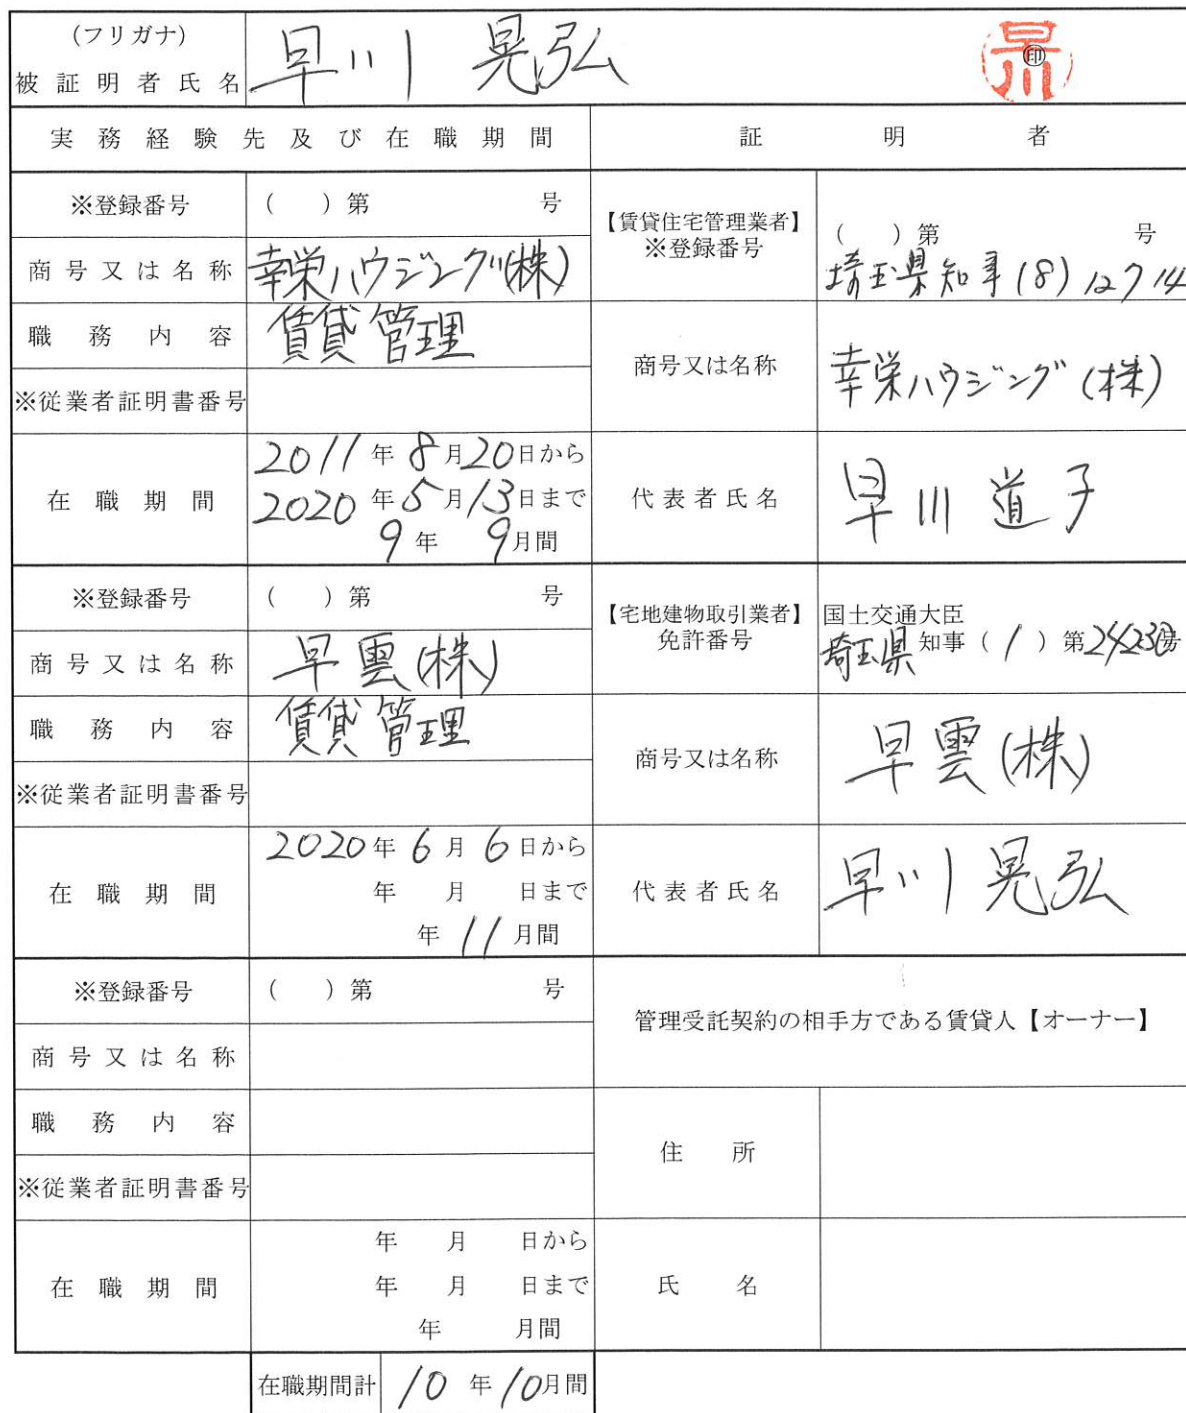 (フリガナ)
被証明者氏名 早川 晃弘 ㊞ 早川
実務経験先及び在職期間 証明者
※登録番号 ( )第 号
商号又は名称 幸栄ハウジング(株)
職務内容 賃貸管理
※従業者証明書番号
在職期間 2011年8月20日から
2020年5月13日まで
9年 9月間
【賃貸住宅管理業者】
※登録番号
( )第 号
埼玉県知事(8)12714
商号又は名称 幸栄ハウジング(株)
代表者氏名 早川道子
※登録番号 ( )第 号
商号又は名称 早雲(株)
職務内容 賃貸管理
※従業者証明書番号
在職期間 2020年6月6日から
年 月 日まで
年 11月間
【宅地建物取引業者】
免許番号
国土交通大臣
埼玉県知事(1)第24230号
商号又は名称 早雲(株)
代表者氏名 早川晃弘
※登録番号 ( )第 号
商号又は名称
職務内容
※従業者証明書番号
在職期間 年 月 日から
年 月 日まで
年 月間
管理受託契約の相手方である賃貸人【オーナー】
住所
氏名
在職期間計 10年10月間